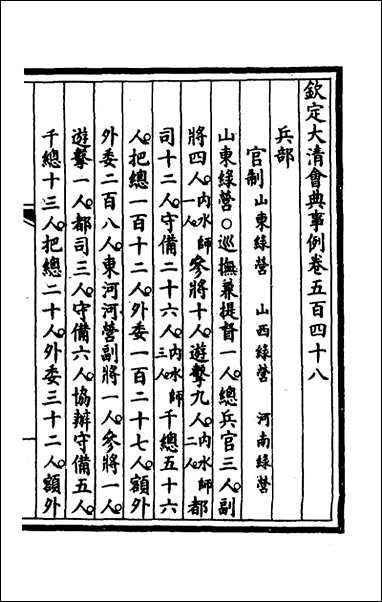 欽定大清會典事例卷五百四十八
兵部
官制 山東綠營 山西綠營 河南綠營
山東綠營○巡撫兼提督一人總兵官三人副
將四人內水師一人參將十人遊擊九人內水師二人都
司十二人守備二十六人內水師三人千總五十六
人把總一百十二人外委一百二十七人額外
外委二百八人東河河營副將一人參將一人
遊擊一人都司三人守備六人協辦守備五人
千總十三人把總二十人外委三十二人額外